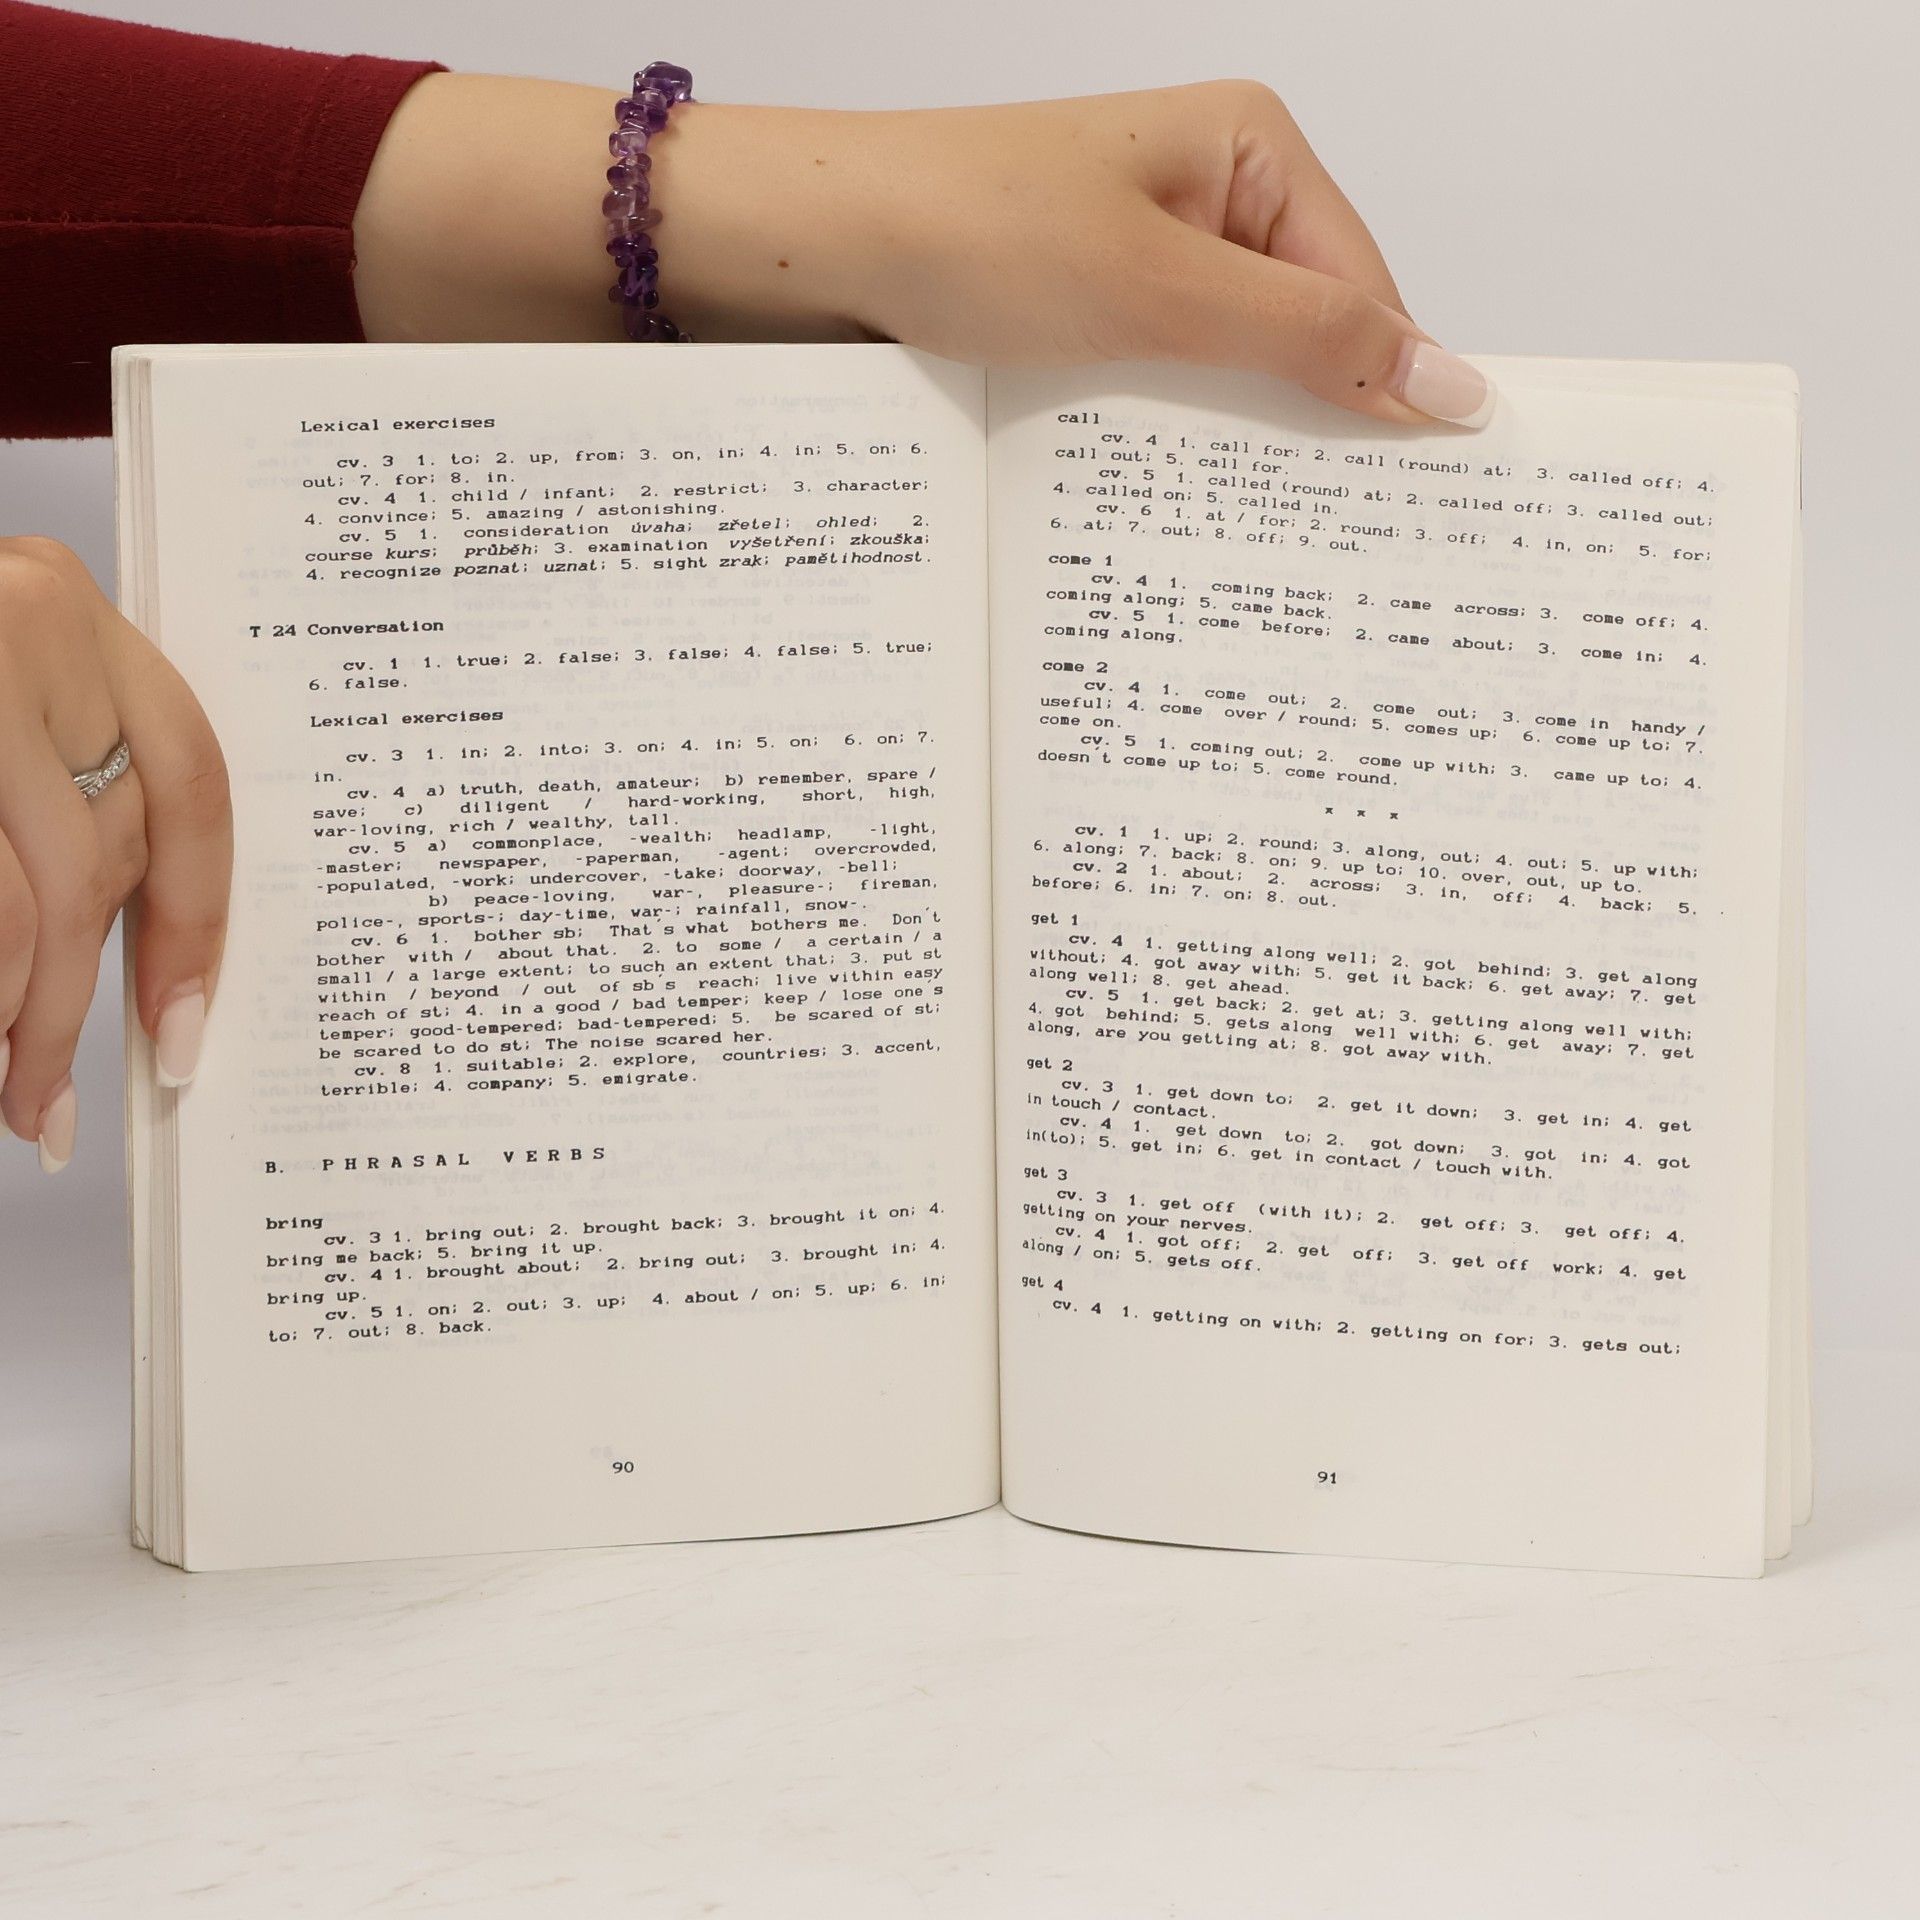 Lexical exercises
cv. 3 1. to; 2. up, from; 3. on, in; 4. in; 5. on; 6.
out; 7. for; 8. in.
cv. 4 1. child / infant; 2. restrict; 3. character;
4. convince; 5. amazing / astonishing.
cv. 5 1. consideration úvaha; zřetel; ohled; 2.
course kurs; průběh; 3. examination vyšetření; zkouška;
4. recognize poznat; uznat; 5. sight zrak; pamětihodnost.
T 24 Conversation
cv. 1 1. true; 2. false; 3. false; 4. false; 5. true;
6. false.
Lexical exercises
cv. 3 1. in; 2. into; 3. on; 4. in; 5. on; 6. on; 7.
in.
cv. 4 a) truth, death, amateur; b) remember, spare /
save; c) diligent / hard-working, short, high,
war-loving, rich / wealthy, tall.
cv. 5 a) commonplace, -wealth; headlamp, -light,
-master; newspaper, -paperman, -agent; overcrowded,
-populated, -work; undercover, -take; doorway, -bell;
b) peace-loving, war-, pleasure-; fireman,
police-, sports-; day-time, war-; rainfall, snow-.
cv. 6 1. bother sb; That´s what bothers me. Don´t
bother with / about that. 2. to some / a certain / a
small / a large extent; to such an extent that; 3. put st
within / beyond / out of sb´s reach; live within easy
reach of st; 4. in a good / bad temper; keep / lose one´s
temper; good-tempered; bad-tempered; 5. be scared of st;
be scared to do st; The noise scared her.
cv. 8 1. suitable; 2. explore, countries; 3. accent,
terrible; 4. company; 5. emigrate.
B. PHRASAL VERBS
bring
cv. 3 1. bring out; 2. brought back; 3. brought it on; 4.
bring me back; 5. bring it up.
cv. 4 1. brought about; 2. bring out; 3. brought in; 4.
bring up.
cv. 5 1. on; 2. out; 3. up; 4. about / on; 5. up; 6. in;
to; 7. out; 8. back.
90
call
cv. 4 1. call for; 2. call (round) at; 3. called off; 4.
call out; 5. call for.
cv. 5 1. called (round) at; 2. called off; 3. called out;
4. called on; 5. called in.
cv. 6 1. at / for; 2. round; 3. off; 4. in, on; 5. for;
6. at; 7. out; 8. off; 9. out.
come 1
cv. 4 1. coming back; 2. came across; 3. come off; 4.
coming along; 5. came back.
cv. 5 1. come before; 2. came about; 3. come in; 4.
coming along.
come 2
cv. 4 1. come out; 2. come out; 3. come in handy /
useful; 4. come over / round; 5. comes up; 6. come up to; 7.
come on.
cv. 5 1. coming out; 2. come up with; 3. came up to; 4.
doesn´t come up to; 5. come round.
* * *
cv. 1 1. up; 2. round; 3. along, out; 4. out; 5. up with;
6. along; 7. back; 8. on; 9. up to; 10. over, out, up to.
cv. 2 1. about; 2. across; 3. in, off; 4. back; 5.
before; 6. in; 7. on; 8. out.
get 1
cv. 4 1. getting along well; 2. got behind; 3. get along
without; 4. got away with; 5. get it back; 6. get away; 7. get
along well; 8. get ahead.
cv. 5 1. get back; 2. get at; 3. getting along well with;
4. got behind; 5. gets along well with; 6. get away; 7. get
along, are you getting at; 8. got away with.
get 2
cv. 3 1. get down to; 2. get it down; 3. get in; 4. get
in touch / contact.
cv. 4 1. get down to; 2. got down; 3. got in; 4. got
in(to); 5. get in; 6. get in contact / touch with.
get 3
cv. 3 1. get off (with it); 2. get off; 3. get off; 4.
getting on your nerves.
cv. 4 1. got off; 2. get off; 3. get off work; 4. get
along / on; 5. gets off.
get 4
cv. 4 1. getting on with; 2. getting on for; 3. gets out;
91